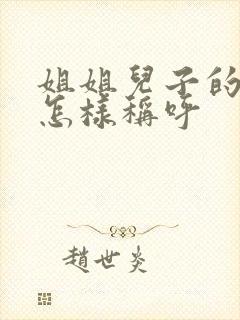 姐姐兒子的
怎樣稱呼
趙世炎